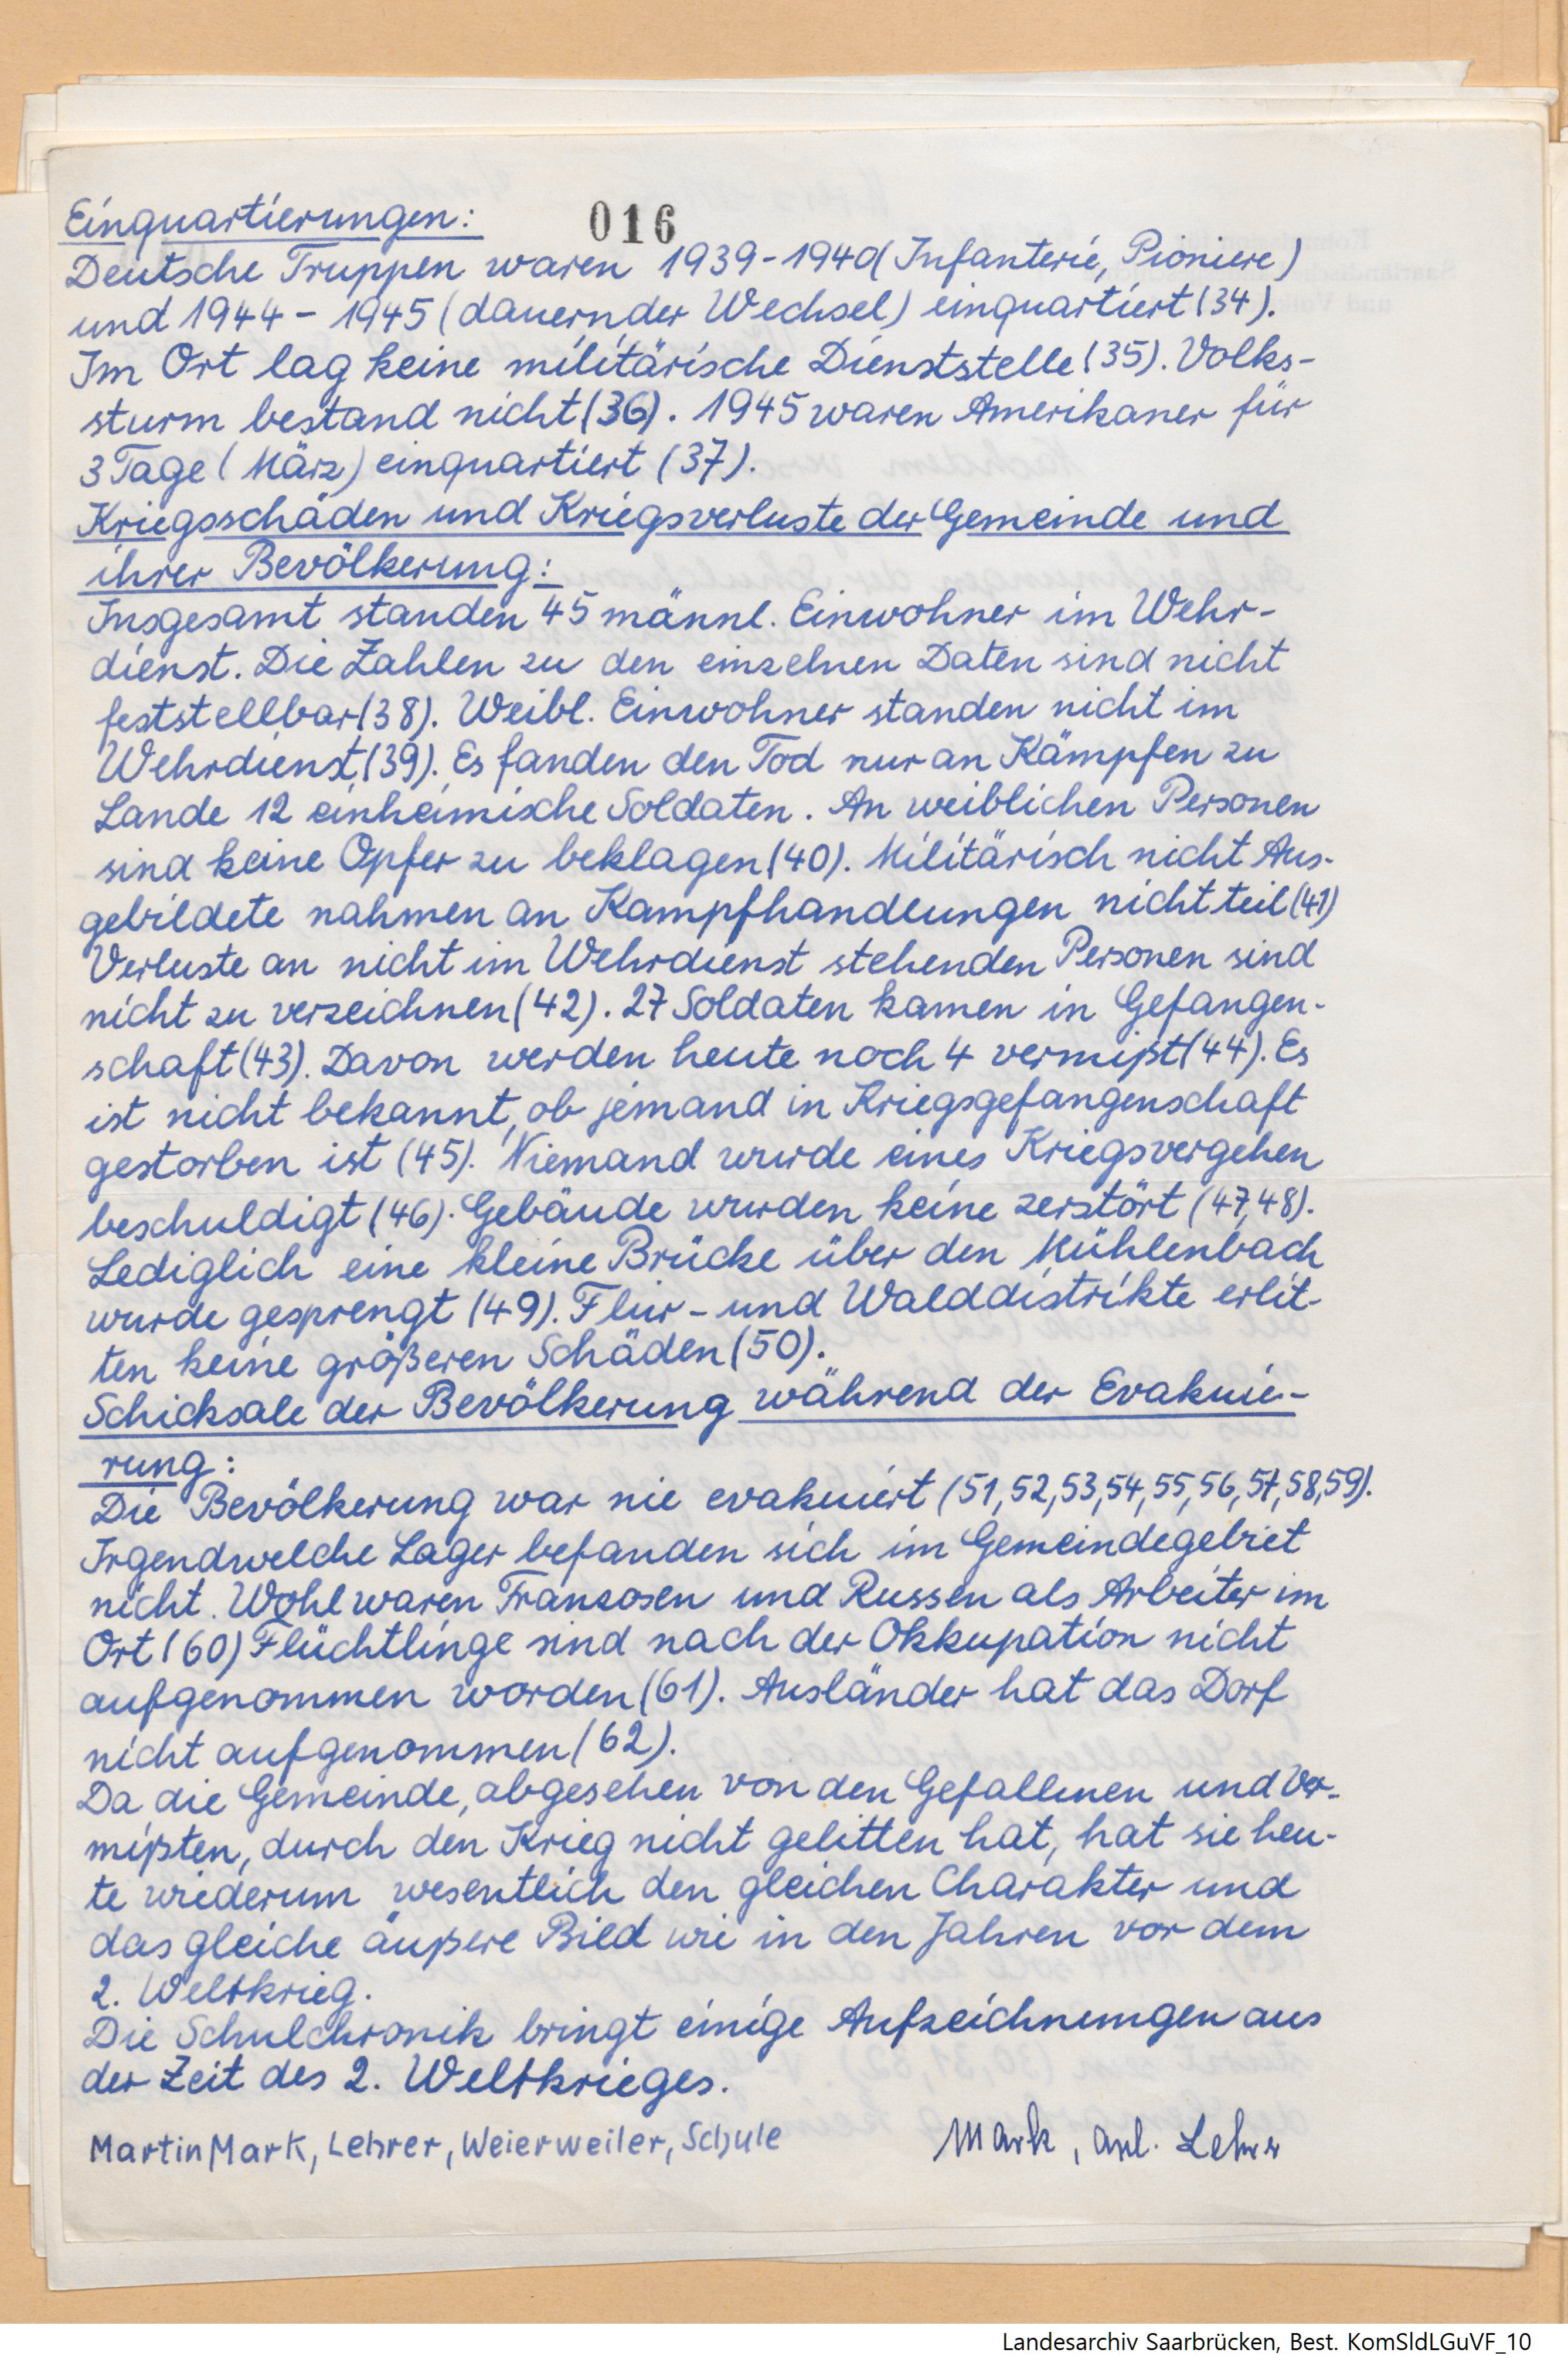 016
Einquartierungen:
Deutsche Truppen waren 1939-1940 (Infanterie, Pioniere)
und 1944 - 1945 (dauernder Wechsel) einquartiert (34).
Im Ort lag keine militärische Dienststelle (35). Volks-
sturm bestand nicht (36). 1945 waren Amerikaner für
3 Tage (März) einquartiert (37).
Kriegsschäden und Kriegsverluste der Gemeinde und
ihrer Bevölkerung:
Insgesamt standen 45 männl. Einwohner im Wehr-
dienst. Die Zahlen zu den einzelnen Daten sind nicht
feststellbar (38). Weibl. Einwohner standen nicht im
Wehrdienst (39). Es fanden den Tod nur an Kämpfen zu
Lande 12 einheimische Soldaten. An weiblichen Personen
sind keine Opfer zu beklagen (40). Militärisch nicht Aus-
gebildete nahmen an Kampfhandlungen nicht teil (41)
Verluste an nicht im Wehrdienst stehenden Personen sind
nicht zu verzeichnen (42). 27 Soldaten kamen in Gefangen-
schaft (43). Davon werden heute noch 4 vermißt (44). Es
ist nicht bekannt, ob jemand in Kriegsgefangenschaft
gestorben ist (45). Niemand wurde eines Kriegsvergehen
beschuldigt (46). Gebäude wurden keine zerstört (47,48).
Lediglich eine kleine Brücke über den Mühlenbach
wurde gesprengt (49). Flur- und Walddistrikte erlit-
ten keine größeren Schäden (50).
Schicksale der Bevölkerung während der Evakuie-
rung:
Die Bevölkerung war nie evakuiert (51,52,53,54,55,56,57,58,59).
Irgendwelche Lager befanden sich im Gemeindegebiet
nicht. Wohl waren Franzosen und Russen als Arbeiter im
Ort (60) Flüchtlinge sind nach der Okkupation nicht
aufgenommen worden (61). Ausländer hat das Dorf
nicht aufgenommen (62).
Da die Gemeinde, abgesehen von den Gefallenen und Ver-
mißten, durch den Krieg nicht gelitten hat, hat sie heu-
te wiederum wesentlich den gleichen Charakter und
das gleiche äußere Bild wie in den Jahren vor dem
2. Weltkrieg.
Die Schulchronik bringt einige Aufzeichnungen aus
der Zeit des 2. Weltkrieges.
Martin Mark, Lehrer, Weierweiler, Schule
Mark, apl. Lehrer
Landesarchiv Saarbrücken, Best. KomSldLGuVF_10